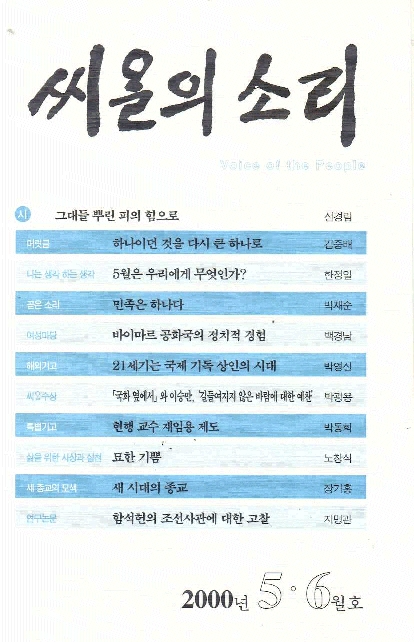 씨ᄋᆞᆯ의 소리
Voice of the People
시 그대들 뿌린 피의 힘으로 신경림
머릿글 하나이던 것을 다시 큰 하나로 김중배
나는 생각 하는 생각 5월은 우리에게 무엇인가? 한정일
곧은 소리 민족은 하나다 박재순
여성마당 바이마르 공화국의 정치적 경험 백경남
해외기고 21세기는 국제 기독 상인의 시대 박영신
씨ᄋᆞᆯ수상 「국화 옆에서」와 이승만, '길들여지지 않은 바람에 대한 예찬' 박광용
특별기고 현행 교수 재임용 제도 박동희
삶을 위한 사상과 실천 묘한 기쁨 노창식
새 종교의 모색 새 시대의 종교 장기홍
연구논문 함석헌의 조선사관에 대한 고찰 지명관
2000년 5·6월호